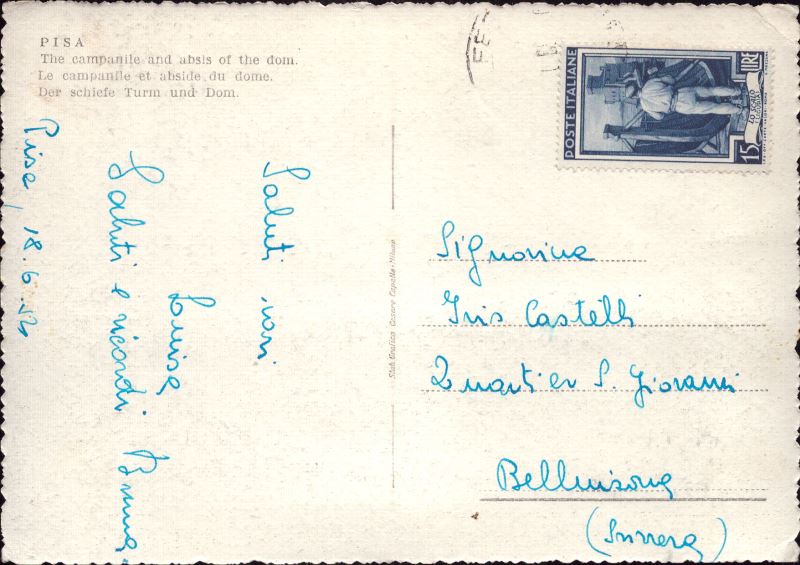 PISA
The campanile and absis of the dom.
Le campanile et abside du dome.
Der schiefe Turm und Dom.
Pisa, 18.6.54
Saluti cari
Luisa
Saluti e ricordi Bruna
Stab. Grafico Cesare Capello - Milano
POSTE ITALIANE
15
LIRE
LO SCALO
Signorina
Iris Castelli
Quartier S. Giovanni
Bellinzona
(Svizzera)